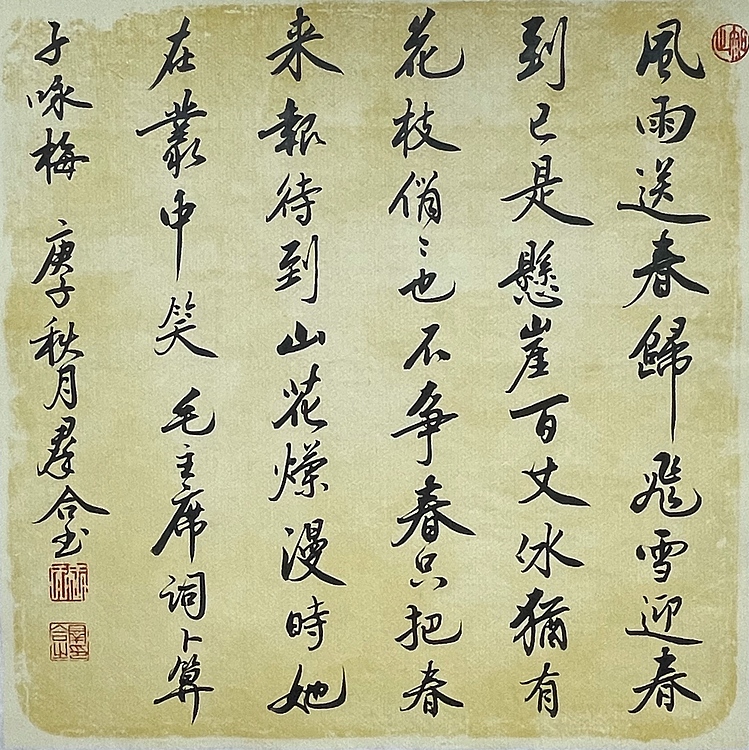 風雨送春歸飛雪迎春
到已是懸崖百丈冰猶有
花枝俏〻也不争春只把春
来報待到山花爛漫時她
在叢中笑 毛主席詞卜算
子咏梅 庚子秋月羣合书